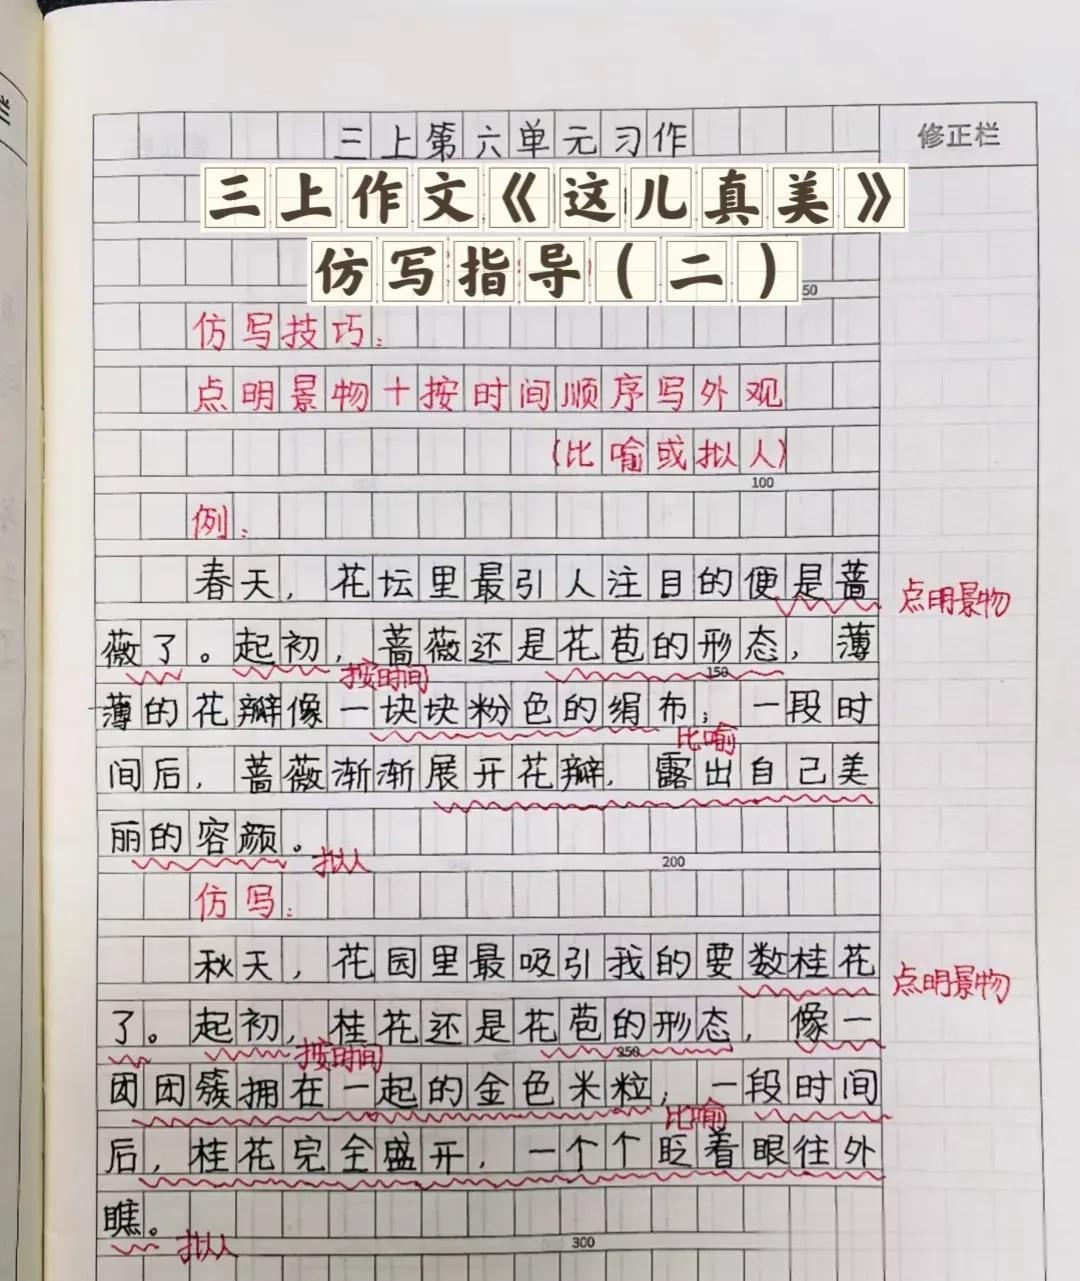 三上第六单元习作
修正栏
三上作文《这儿真美》
仿写指导（二）
50
仿写技巧：
点明景物+按时间顺序写外观
（比喻或拟人）
100
例：
春天，花坛里最引人注目的便是蔷
点明景物
薇了。起初，蔷薇还是花苞的形态，薄
按时间
150
薄的花瓣像一块块粉色的绢布；一段时
比喻
间后，蔷薇渐渐展开花瓣，露出自己美
丽的容颜。
拟人
200
仿写：
秋天，花园里最吸引我的要数桂花
点明景物
了。起初，桂花还是花苞的形态，像一
按时间
250
团团簇拥在一起的金色米粒；一段时间
比喻
后，桂花完全盛开，一个个眨着眼往外
瞧。
拟人
300